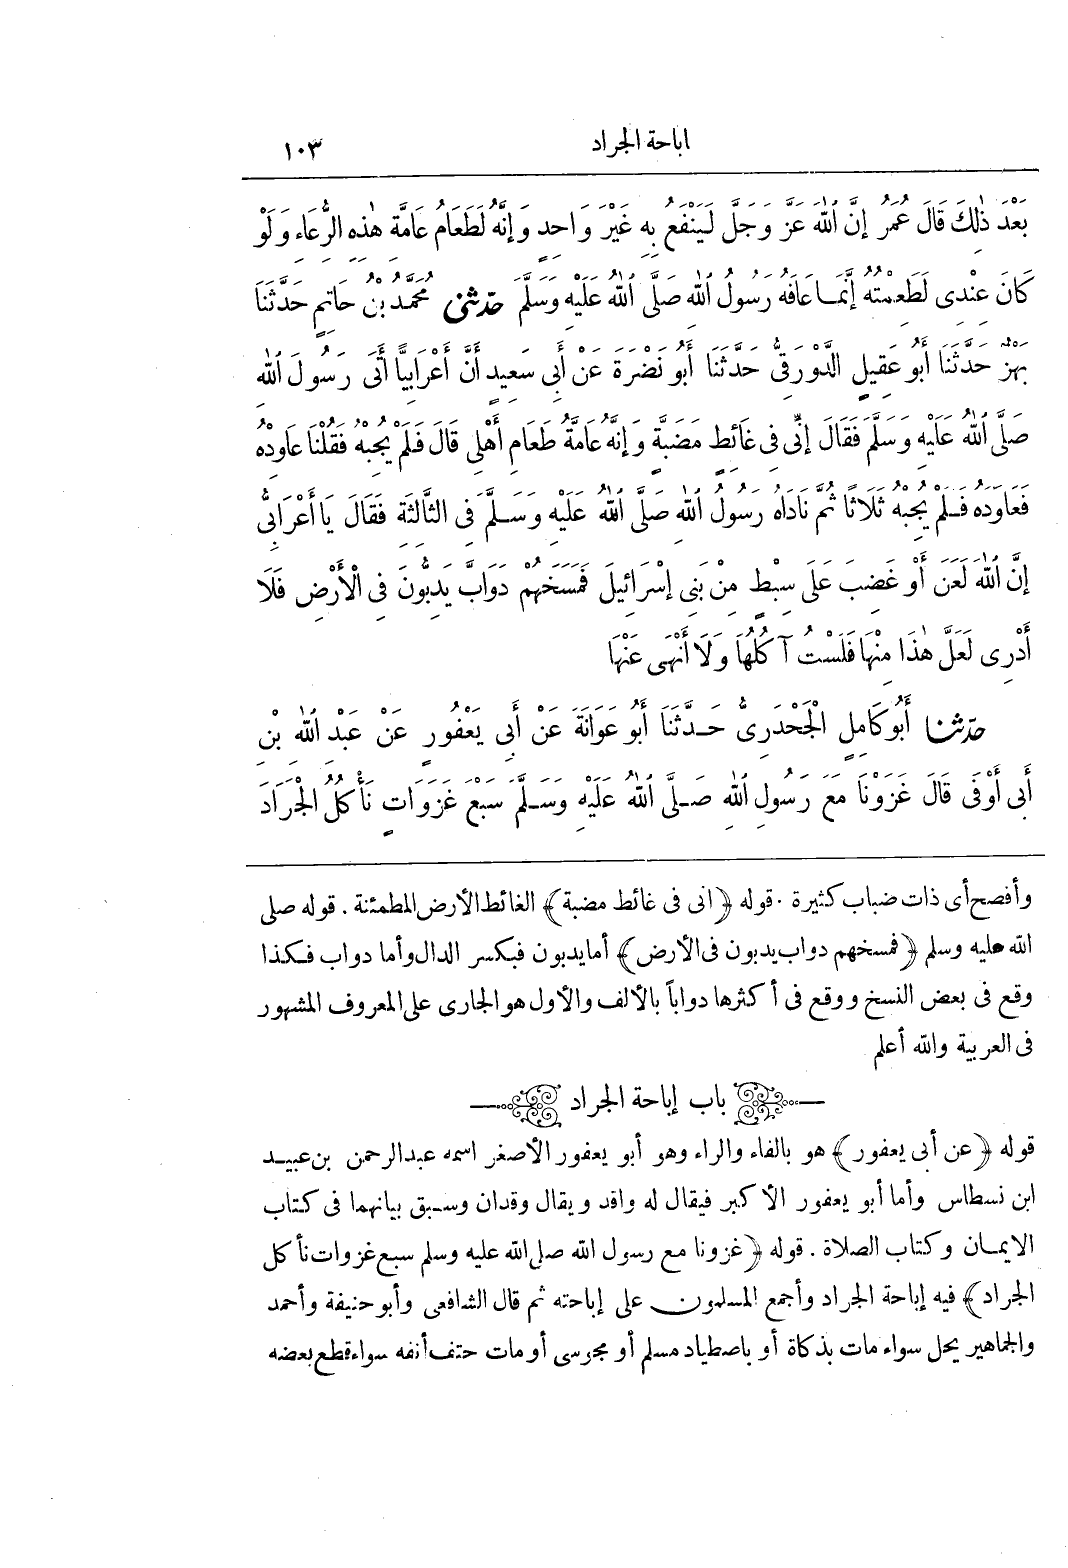 اباحة الجراد ١٠٣
بَعْدَ ذٰلِكَ قَالَ عُمَرُ إِنَّ اللهَ عَزَّ وَجَلَّ لَيَنْفَعُ بِهِ غَيْرَ وَاحِدٍ وَإِنَّهُ لَطَعَامُ عَامَّةِ هٰذِهِ الرِّعَاءِ وَلَوْ
كَانَ عِنْدِى لَطَعِمْتُهُ إِنَّمَا عَافَهُ رَسُولُ اللهِ صَلَّى اللهُ عَلَيْهِ وَسَلَّمَ حدّثنى مُحَمَّدُ بْنُ حَاتِمٍ حَدَّثَنَا
بَهْزٌ حَدَّثَنَا أَبُو عَقِيلٍ الدَّوْرَقِىُّ حَدَّثَنَا أَبُو نَضْرَةَ عَنْ أَبِى سَعِيدٍ أَنَّ أَعْرَابِيًّا أَتَى رَسُولَ اللهِ
صَلَّى اللهُ عَلَيْهِ وَسَلَّمَ فَقَالَ إِنِّى فِى غَائِطٍ مَضَبَّةٍ وَإِنَّهُ عَامَّةُ طَعَامِ أَهْلِى قَالَ فَلَمْ يُجِبْهُ فَقُلْنَا عَاوِدْهُ
فَعَاوَدَهُ فَلَمْ يُجِبْهُ ثَلَاثًا ثُمَّ نَادَاهُ رَسُولُ اللهِ صَلَّى اللهُ عَلَيْهِ وَسَلَّمَ فِى الثَّالِثَةِ فَقَالَ يَا أَعْرَابِىُّ
إِنَّ اللهَ لَعَنَ أَوْ غَضِبَ عَلَى سِبْطٍ مِنْ بَنِى إِسْرَائِيلَ فَمَسَخَهُمْ دَوَابَّ يَدِبُّونَ فِى الْأَرْضِ فَلَا
أَدْرِى لَعَلَّ هٰذَا مِنْهَا فَلَسْتُ آكُلُهَا وَلَا أَنْهَى عَنْهَا
حدّثنا أَبُو كَامِلٍ الْجَحْدَرِىُّ حَدَّثَنَا أَبُو عَوَانَةَ عَنْ أَبِى يَعْفُورٍ عَنْ عَبْدِ اللهِ بْنِ
أَبِى أَوْفَى قَالَ غَزَوْنَا مَعَ رَسُولِ اللهِ صَلَّى اللهُ عَلَيْهِ وَسَلَّمَ سَبْعَ غَزَوَاتٍ نَأْكُلُ الْجَرَادَ
وأفصح أى ذات ضباب كثيرة . قوله ﴿انى فى غائط مضبة﴾ الغائط الأرض المطمئنة . قوله صلى
الله عليه وسلم ﴿فمسخهم دواب يدبون فى الأرض﴾ أما يدبون فبكسر الدال وأما دواب فكذا
وقع فى بعض النسخ ووقع فى أكثرها دواباً بالألف والأول هو الجارى على المعروف المشهور
فى العربية والله أعلم
باب إباحة الجراد
قوله ﴿عن أبى يعفور﴾ هو بالفاء والراء وهو أبو يعفور الأصغر اسمه عبدالرحمن بن عبيد
ابن نسطاس وأما أبو يعفور الأكبر فيقال له واقد ويقال وقدان وسبق بيانهما فى كتاب
الايمان وكتاب الصلاة . قوله ﴿غزونا مع رسول الله صلى الله عليه وسلم سبع غزوات نأكل
الجراد﴾ فيه إباحة الجراد وأجمع المسلمون على إباحته ثم قال الشافعى وأبو حنيفة وأحمد
والجماهير يحل سواء مات بذكاة أو باصطياد مسلم أو مجوسى أو مات حتف أنفه سواء قطع بعضه